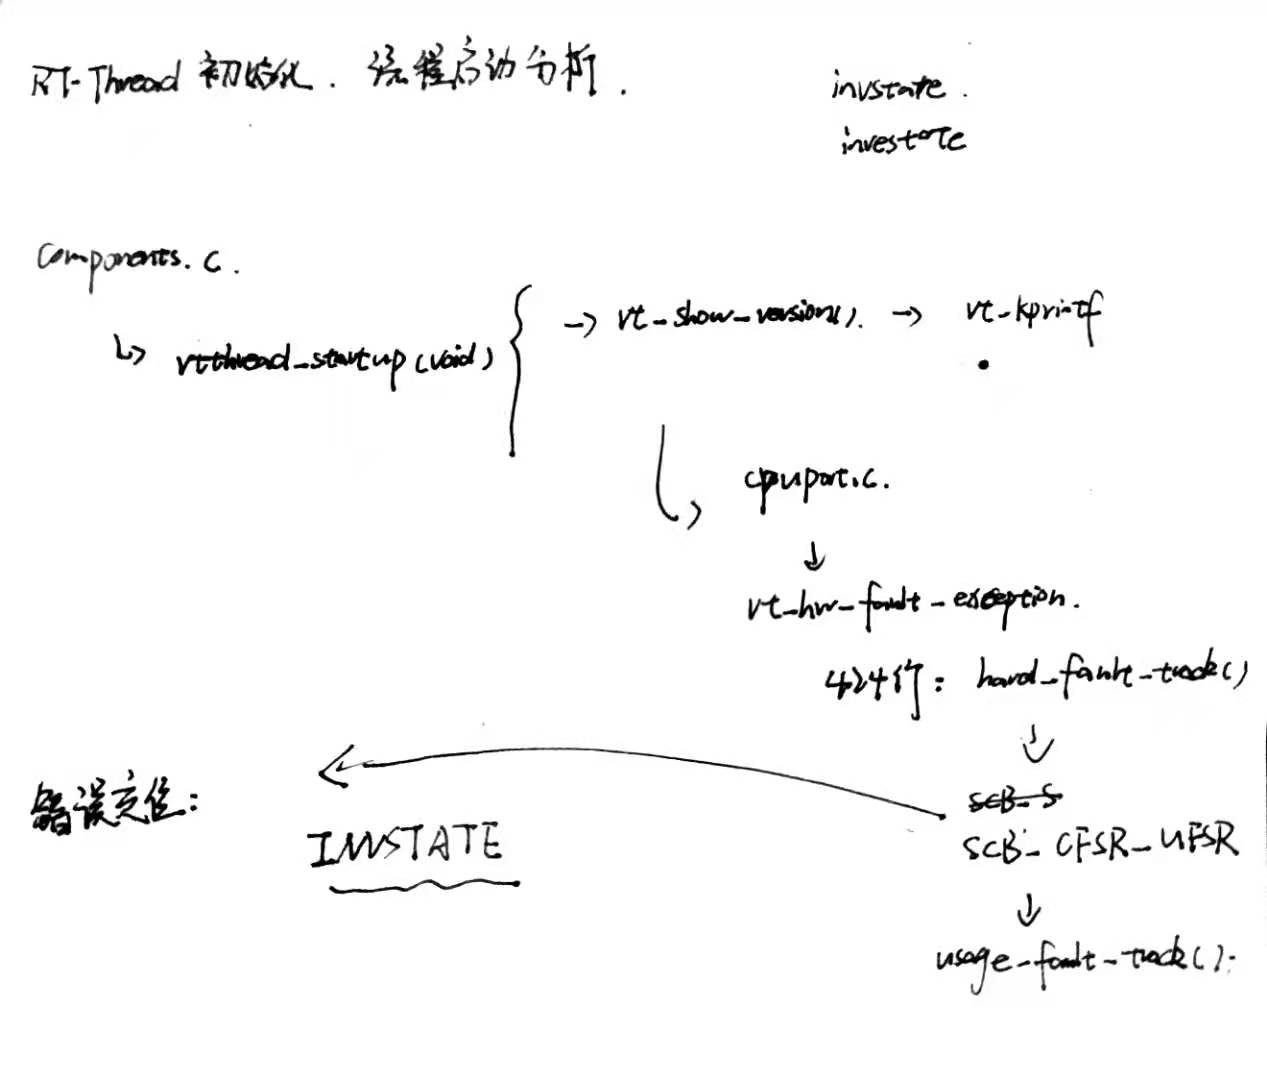 RT-Thread 初始化. 流程启动分析.
invstate.
investate
components.c.
↳ rtthread_startup(void) { → rt_show_version(). → rt_kprintf
cpuport.c.
↓
rt_hw_fault_exception.
424行: hard_fault_track()
↓
SCB_S
错误定位:
INVSTATE
SCB_CFSR_UFSR
↓
usage_fault_track().